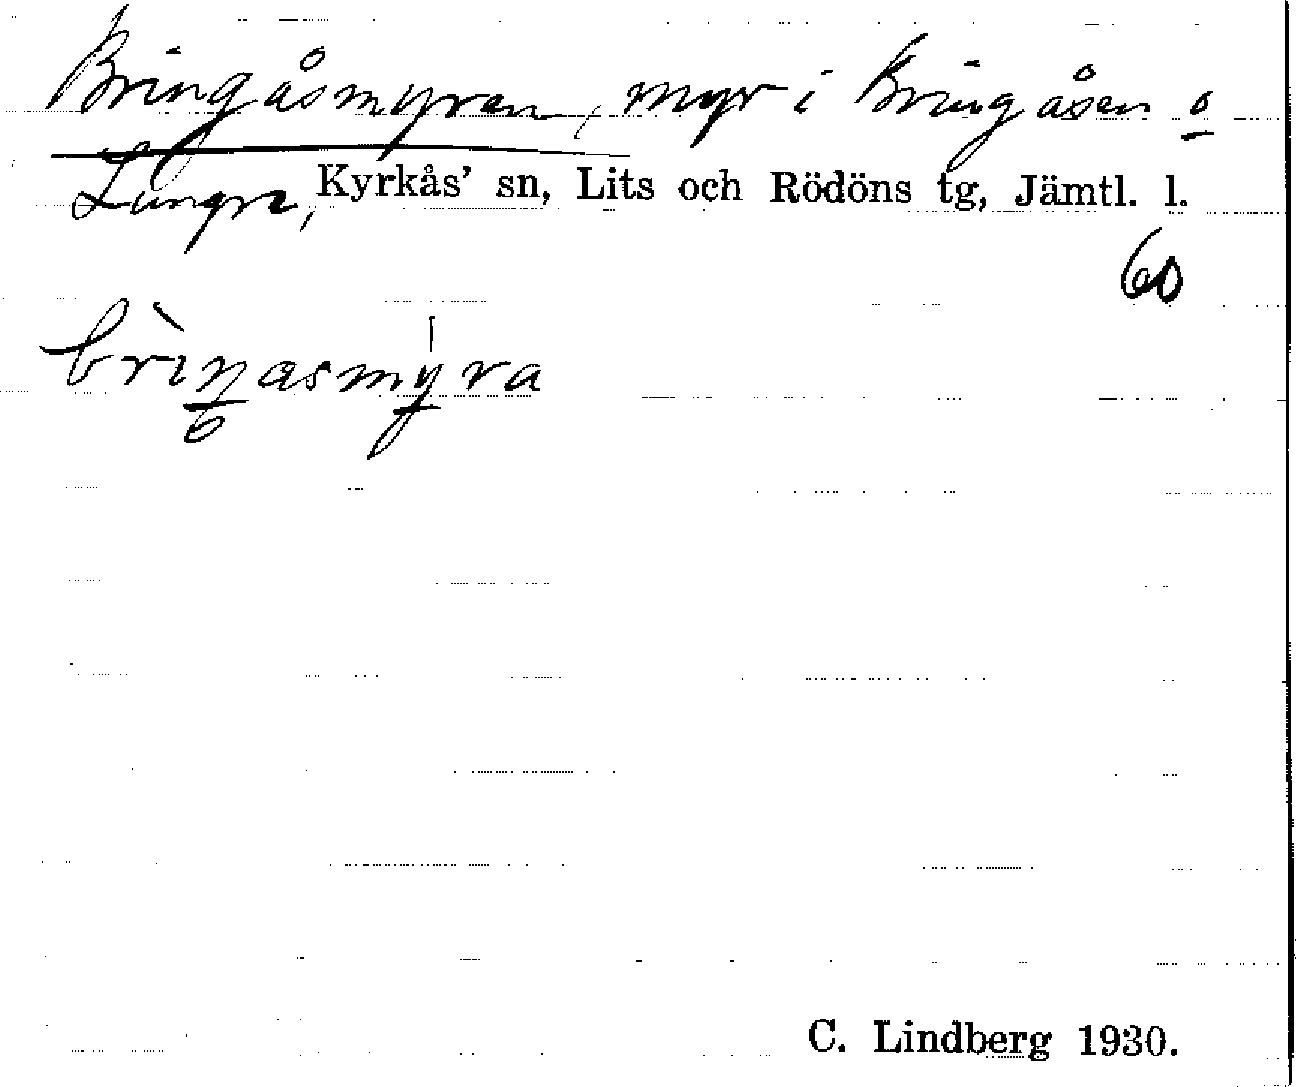 Bringåsmyren, myr i Bringåsen o
Lungre, Kyrkås' sn, Lits och Rödöns tg, Jämtl. l.
60
C. Lindberg 1930.